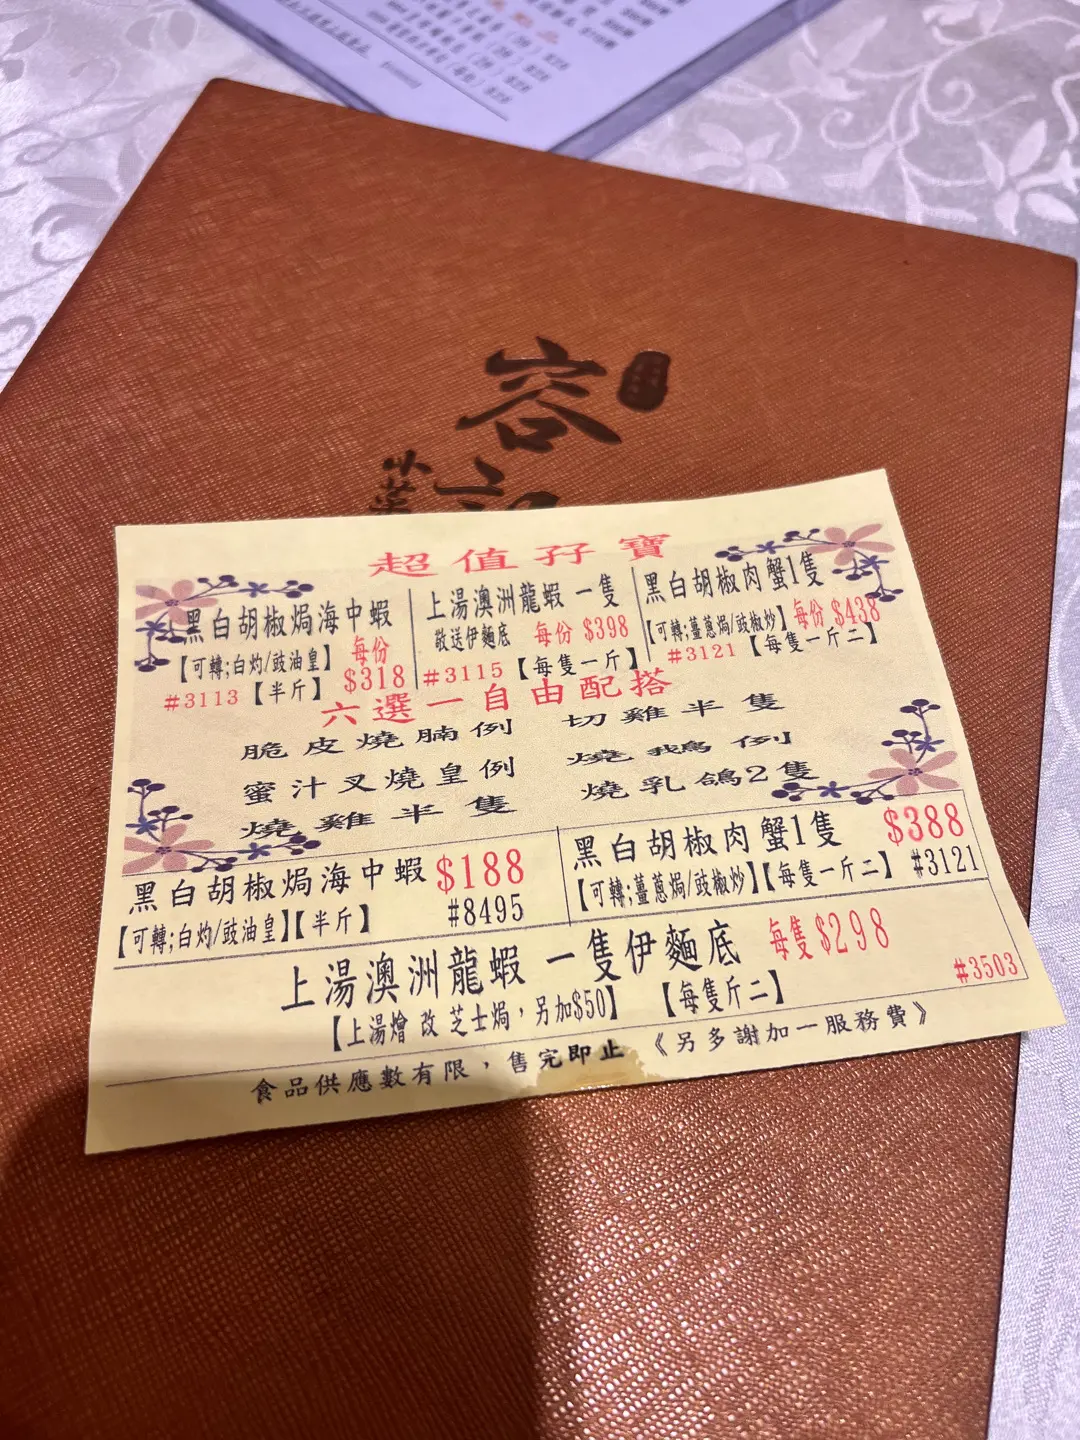 容
小菜
超值孖寶
黑白胡椒焗海中蝦
【可轉;白灼/豉油皇】
每份
$318
#3113【半斤】
上湯澳洲龍蝦 一隻
敬送伊麵底 每份 $398
#3115【每隻一斤】
黑白胡椒肉蟹1隻
【可轉;薑蔥焗/豉椒炒】每份 $438
#3121【每隻一斤二】
六選一自由配搭
脆皮燒腩例 切雞半隻
蜜汁叉燒皇例 燒鵝例
燒雞半隻 燒乳鴿2隻
黑白胡椒焗海中蝦 $188
【可轉;白灼/豉油皇】【半斤】 #8495
黑白胡椒肉蟹1隻 $388
【可轉;薑蔥焗/豉椒炒】【每隻一斤二】 #3121
上湯澳洲龍蝦 一隻伊麵底 每隻$298
【上湯燴 改 芝士焗，另加$50】 【每隻斤二】 #3503
食品供應數有限，售完即止 《另多謝加一服務費》